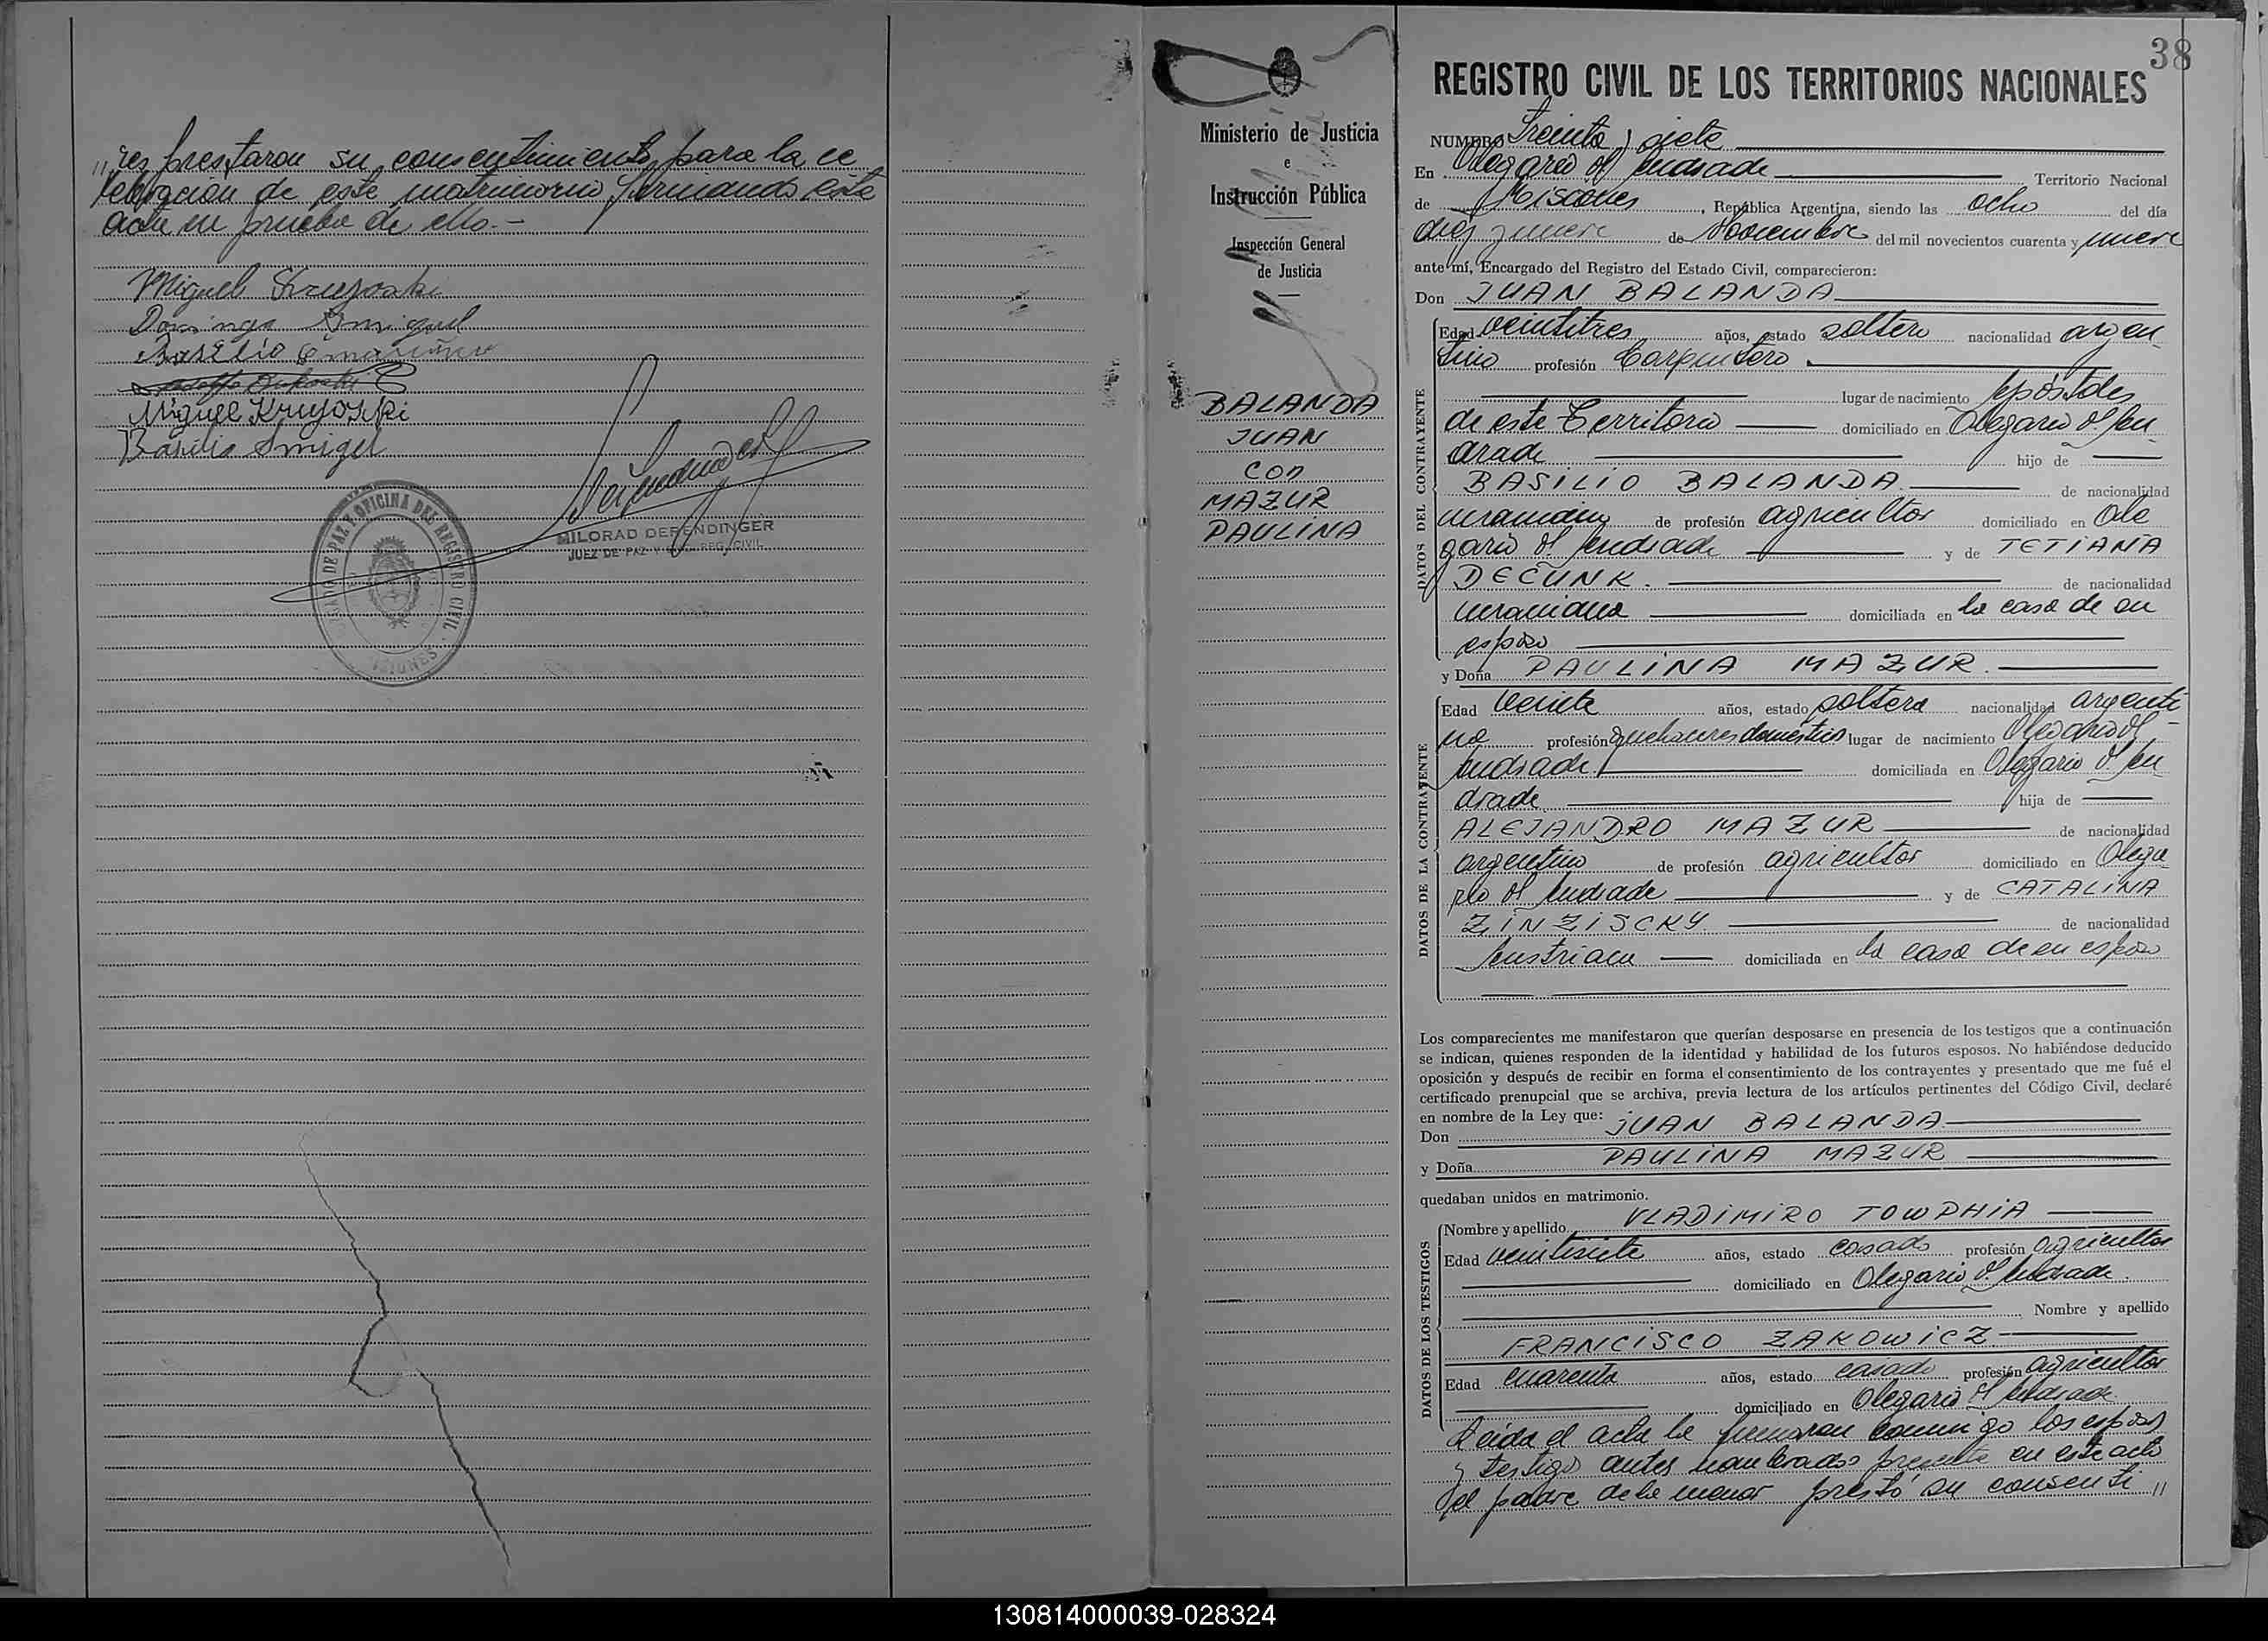 res prestaron su consentimiento para la ce
lebracion de este matrimonio, firmando este
acta en prueba de ello.-
Miguel
Domingo Smiguel
Basilio
Miguel Kruyoski
Basilio Smigel
MILORAD DERENDINGER
JUEZ DE PAZ Y REG. CIVIL
JUZGADO DE PAZ Y OFICINA DEL REGISTRO CIVIL
MISIONES
Ministerio de Justicia
e
Instrucción Pública
Inspección General
de Justicia
BALANDA
JUAN
CON
MAZUR
PAULINA
38
REGISTRO CIVIL DE LOS TERRITORIOS NACIONALES
NUMERO Treinta y siete
En Olegario V Andrade Territorio Nacional
de Misiones, República Argentina, siendo las ocho del día
diez y nueve de Noviembre del mil novecientos cuarenta y nueve
ante mí, Encargado del Registro del Estado Civil, comparecieron:
Don JUAN BALANDA
DATOS DEL CONTRAYENTE
Edad veintitres años, estado soltero nacionalidad argen
tino profesión Carpintero
lugar de nacimiento Apóstoles
de este Territorio domiciliado en Olegario V An
drade hijo de
BASILIO BALANDA de nacionalidad
ucraniano de profesión agricultor domiciliado en Ole
gario V Andrade y de TETIANA
DECUNK. de nacionalidad
ucraniana domiciliada en la casa de su
esposo
y Doña PAULINA MAZUR.
DATOS DE LA CONTRAYENTE
Edad veinte años, estado soltera nacionalidad argenti
na profesión quehaceres domésticos lugar de nacimiento Olegario V
Andrade. domiciliada en Olegario V An
drade hija de
ALEJANDRO MAZUR de nacionalidad
argentino de profesión agricultor domiciliado en Olega
rio V Andrade y de CATALINA
ZINZISCKY de nacionalidad
Austriaca domiciliada en la casa de su esposo
Los comparecientes me manifestaron que querían desposarse en presencia de los testigos que a continuación
se indican, quienes responden de la identidad y habilidad de los futuros esposos. No habiéndose deducido
oposición y después de recibir en forma el consentimiento de los contrayentes y presentado que me fué el
certificado prenupcial que se archiva, previa lectura de los artículos pertinentes del Código Civil, declaré
en nombre de la Ley que:
Don JUAN BALANDA
y Doña PAULINA MAZUR
quedaban unidos en matrimonio.
DATOS DE LOS TESTIGOS
Nombre y apellido VLADIMIRO TOWPHIA
Edad veintisiete años, estado casado profesión agricultor
domiciliado en Olegario V. Andrade.
Nombre y apellido
FRANCISCO ZAKOWICZ.
Edad cuarenta años, estado casado profesión agricultor
domiciliado en Olegario V Andrade.
Leida el acta la firmaron conmigo los esposos
y testigos antes nombrados presente en este acto
el padre de la menor prestó su consenti "
130814000039-028324